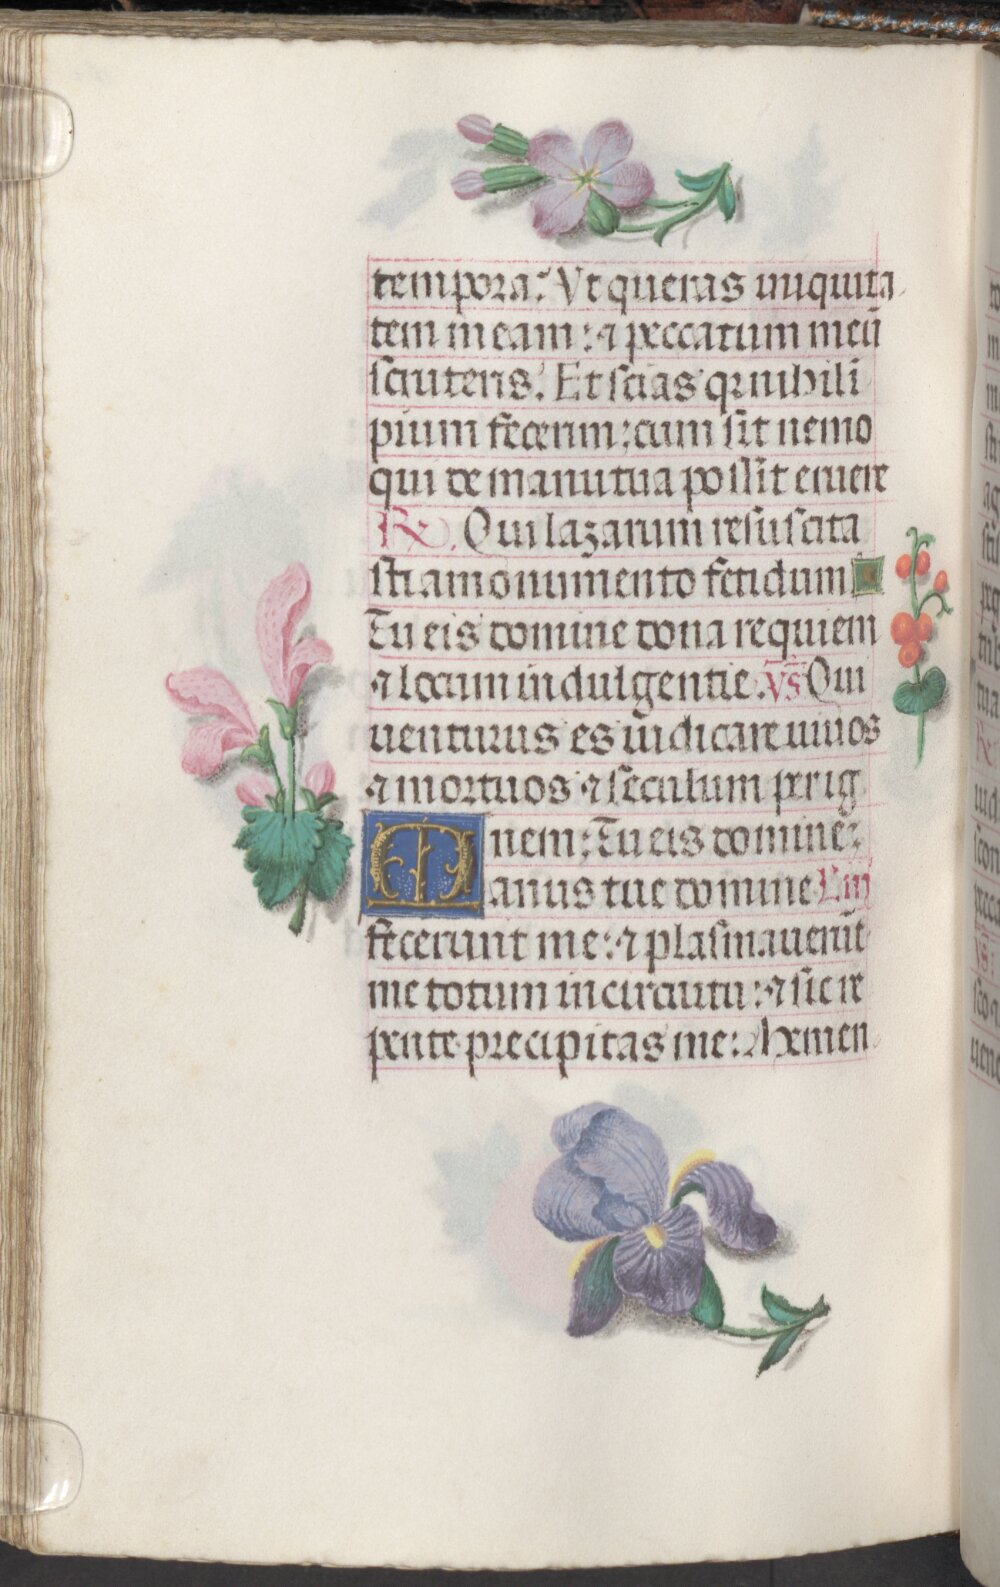 tempora? Ut queras iniquita
tem meam: ⁊ peccatum meū
scruteris. Et scias qr nihil i
pium fecerim: cum sit nemo
qui de manu tua possit eruere
R. Qui lazarum resuscita
sti a monumento fetidum
Tu eis domine dona requiem
⁊ locum indulgentie. vs Qui
uenturus es iudicare uiuos
⁊ mortuos ⁊ seculum per ig
nem: Tu eis domine:
Manus tue domine
fecerunt me: ⁊ plasmauerūt
me totum in circuitu: ⁊ sic re
pente precipitas me: Memen